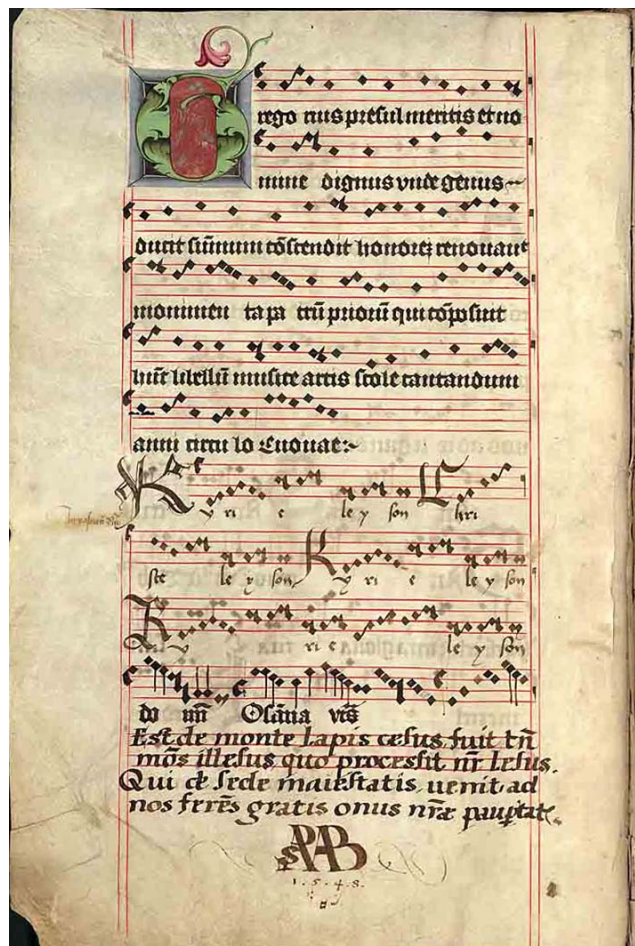 Grego rius presul meritis et no
mine dignus vnde genus
ducit su̅mum co̅scendit honorez renouauit
monimen ta pa tru̅ prioru̅ qui co̅posuit
hu̅c libellu̅ musice artis scole cantandum
anni circu lo Euouae:~
Ky ri e ley son Chri
ste le y son Ky ri e le y son
Ky ri e le y son
do nu̅ Osa̅na
Est de monte lapis cesus fuit tn̅
mo̅s illesus quo processit nr̅ Iesus.
Qui de sede maiestatis uenit ad
nos fere̅s gratis onus nr̅æ paup̱tat
1.5.4.8.